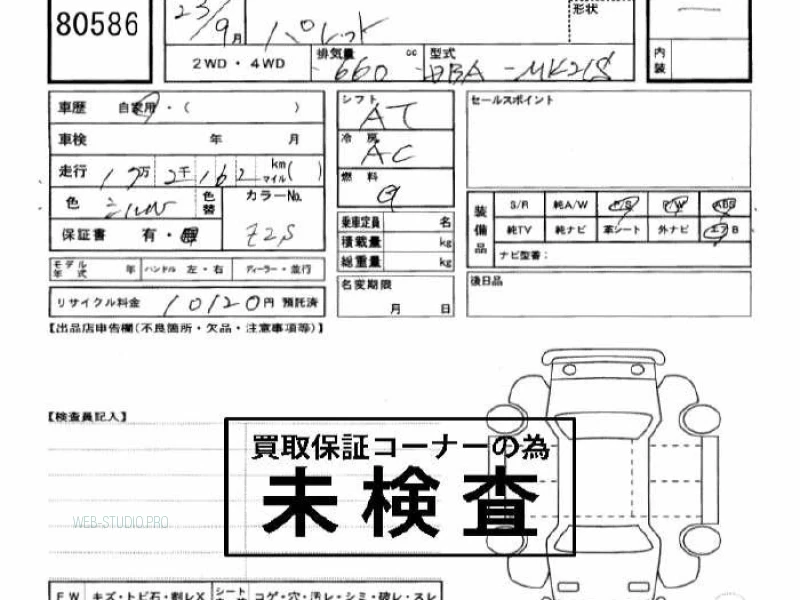 80586
23/9月
パレット
形状
2WD・4WD
排気量 660 cc
型式 DBA-MK21S
内装
車歴 自家用・( )
車検 年 月
走行 17万2千162 km マイル( )
色
色替
カラーNo. Z2S
保証書 有・無
モデル年式 年 ハンドル 左・右 ディーラー・並行
リサイクル料金 10120円 預託済
シフト AT
冷房 AC
燃料 G
乗車定員 名
積載量 kg
総重量 kg
名変期限
月 日
セールスポイント
装備品
S/R 純A/W P/S P/W ABS
純TV 純ナビ 革シート 外ナビ エアB
ナビ型番:
後日品
【出品店申告欄(不良箇所・欠品・注意事項等)】
【検査員記入】
買取保証コーナーの為
未検査
WEB-STUDIO.PRO
FW キズ・トビ石・割レX シート コゲ・穴・汚レ・シミ・破レ・スレ